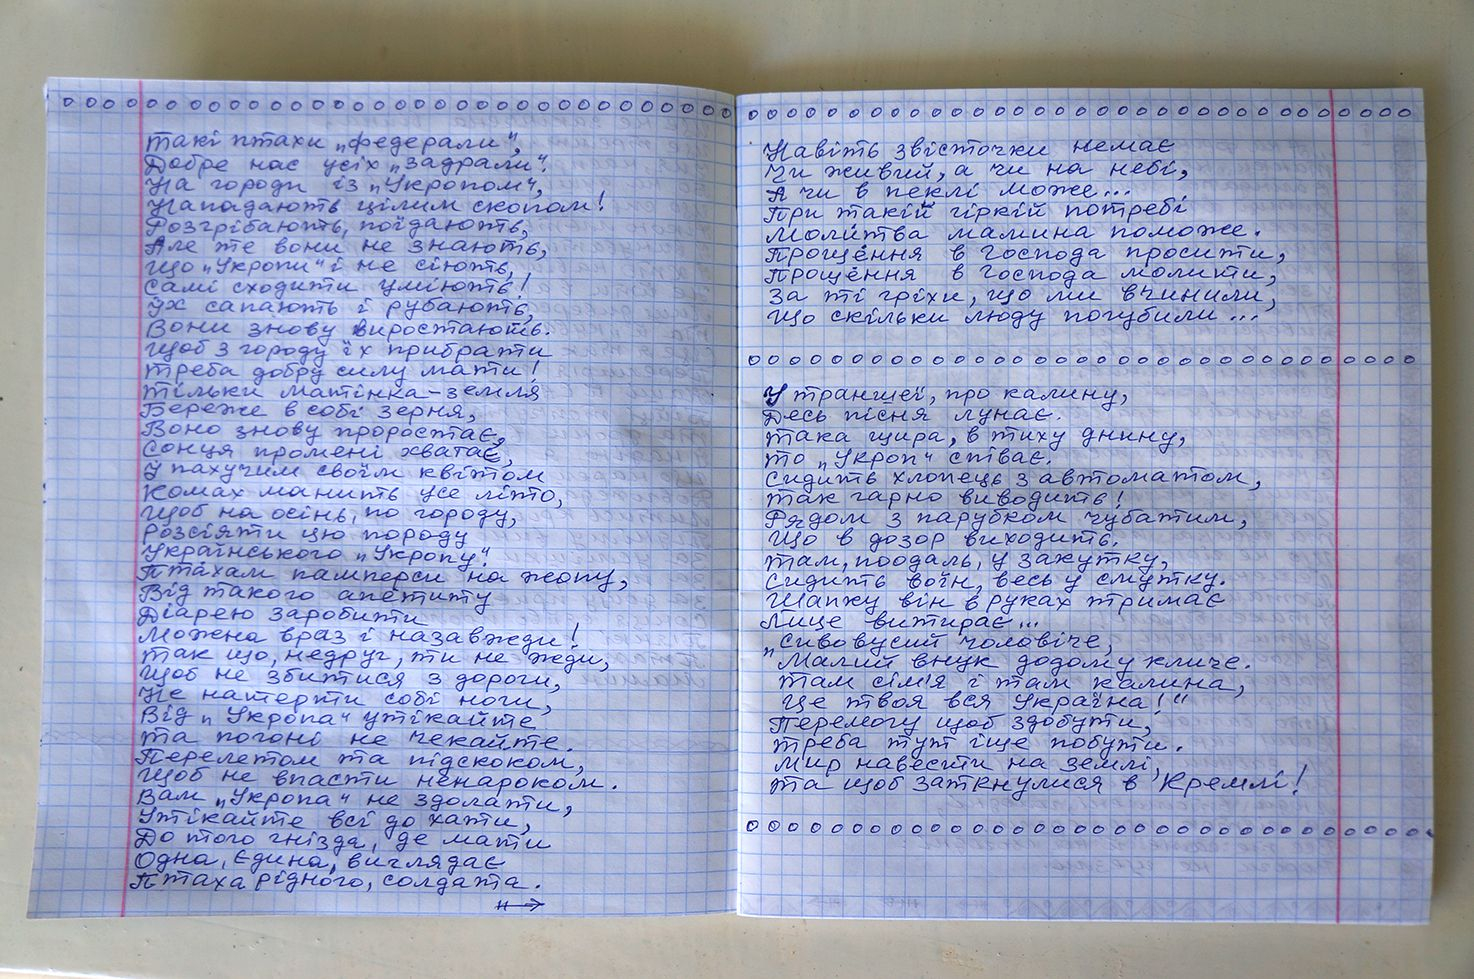 Такі птахи „федерали",
Добре нас усіх „задрали".
На городи із „Укропом",
Нападають цілим скопом!
Розгрібають, поїдають,
Але те вони не знають,
Що „Укропи" і не сіють,
Самі сходити уміють!
Їх сапають і рубають,
Вони знову виростають.
Щоб з городу їх прибрати
Треба добру силу мати!
Тільки матінка-земля
Береже в собі зерня,
Воно знову проростає,
Сонця промені хватає,
У пахучим своїм квітом
Комах манить усе літо,
Щоб на осінь, по городу,
Розсіяти цю породу
Українського „Укропу".
Птахам памперси на жопу,
Від такого апетиту
Діарею заробити
Можна враз і назавжди!
Так що, недруг, ти не жди,
Щоб не збитися з дороги,
Не натерти собі ноги,
Від „Укропа" утікайте
Та погоні не чекайте.
Перелетом та підскоком,
Щоб не впасти ненароком.
Вам „Укропа" не здолати,
Утікайте всі до хати,
До того гнізда, де мати
Одна, єдина, виглядає
Птаха рідного, солдата.
Навіть звісточки немає
Чи живий, а чи на небі,
А чи в пеклі може...
При такій гіркій потребі
Молитва мамина поможе.
Прощення в Господа просити,
Прощення в Господа молити,
За ті гріхи, що ми вчинили,
Що скільки люду погубили...
У траншеї, про калину,
Десь пісня лунає.
Така щира, в тиху днину,
То „Укроп" співає.
Сидить хлопець з автоматом,
Так гарно виводить!
Рядом з парубком чубатим,
Що в дозор виходить.
Там, поодаль, у закутку,
Сидить воїн, весь у смутку.
Шапку він в руках тримає
Лице витирає...
„Сивовусий чоловіче,
Малий внук додому кличе.
Там сім'я і там калина,
Це твоя вся Україна!"
Перемогу щоб здобути,
Треба тут іще побути.
Мир навести на землі,
Та щоб заткнулися в Кремлі!